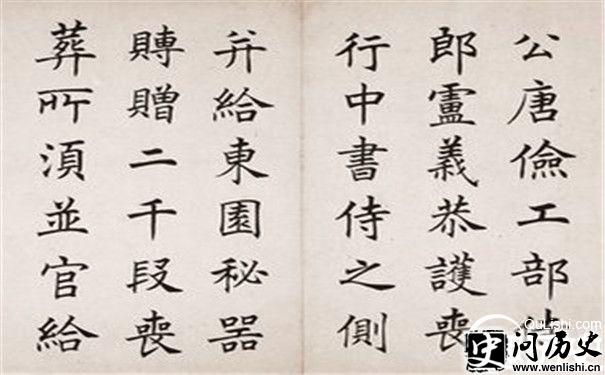 公唐儉工部
郎盧義恭護喪
行中書侍之側
并給東園秘器
賻贈二千段喪
葬所須並官給
QuLishi.com
问历史
www.wenlishi.cn